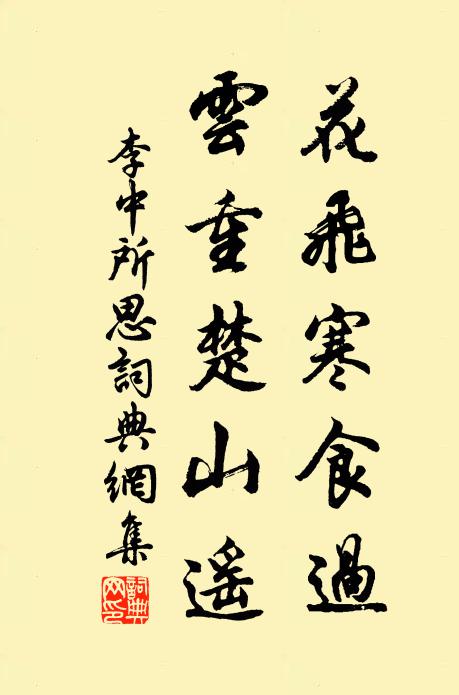 花飛寒食過
雲重楚山遥
李中所思詞典網集
詞典
网印